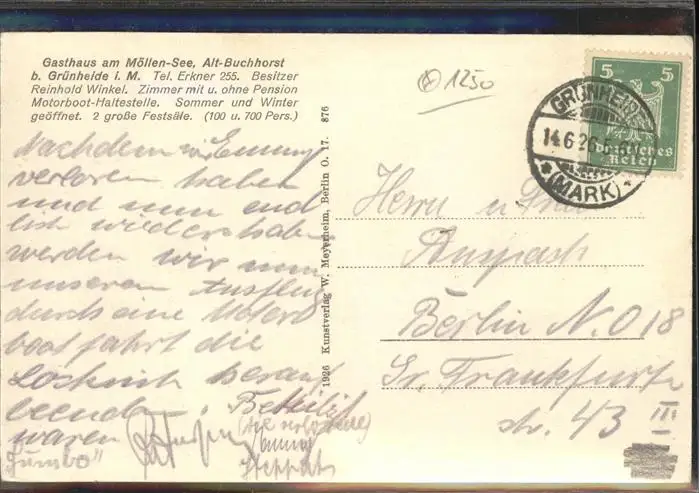 Gasthaus am Möllen-See, Alt-Buchhorst
b. Grünheide i. M. Tel. Erkner 255. Besitzer
Reinhold Winkel. Zimmer mit u. ohne Pension
Motorboot-Haltestelle. Sommer und Winter
geöffnet. 2 große Festsäle. (100 u. 700 Pers.)
Nachdem wir Emmy
verloren haben
und nun end
lich wieder haben
werden wir nun
unseren Ausflug
durch eine Motor
boot fahrt die
Löcknitz herauf
beenden.
waren
"Jumbo"
(die verlorene)
Emmy
1926 Kunstverlag W. Meyerheim, Berlin O. 17. 876
1250
5 5
Deutsches
Reich
GRÜNHEIDE
14.6.26
(MARK)
Herrn u. Frau
Anspach
Berlin N.O 18
Gr. Frankfurter
str. 43 III